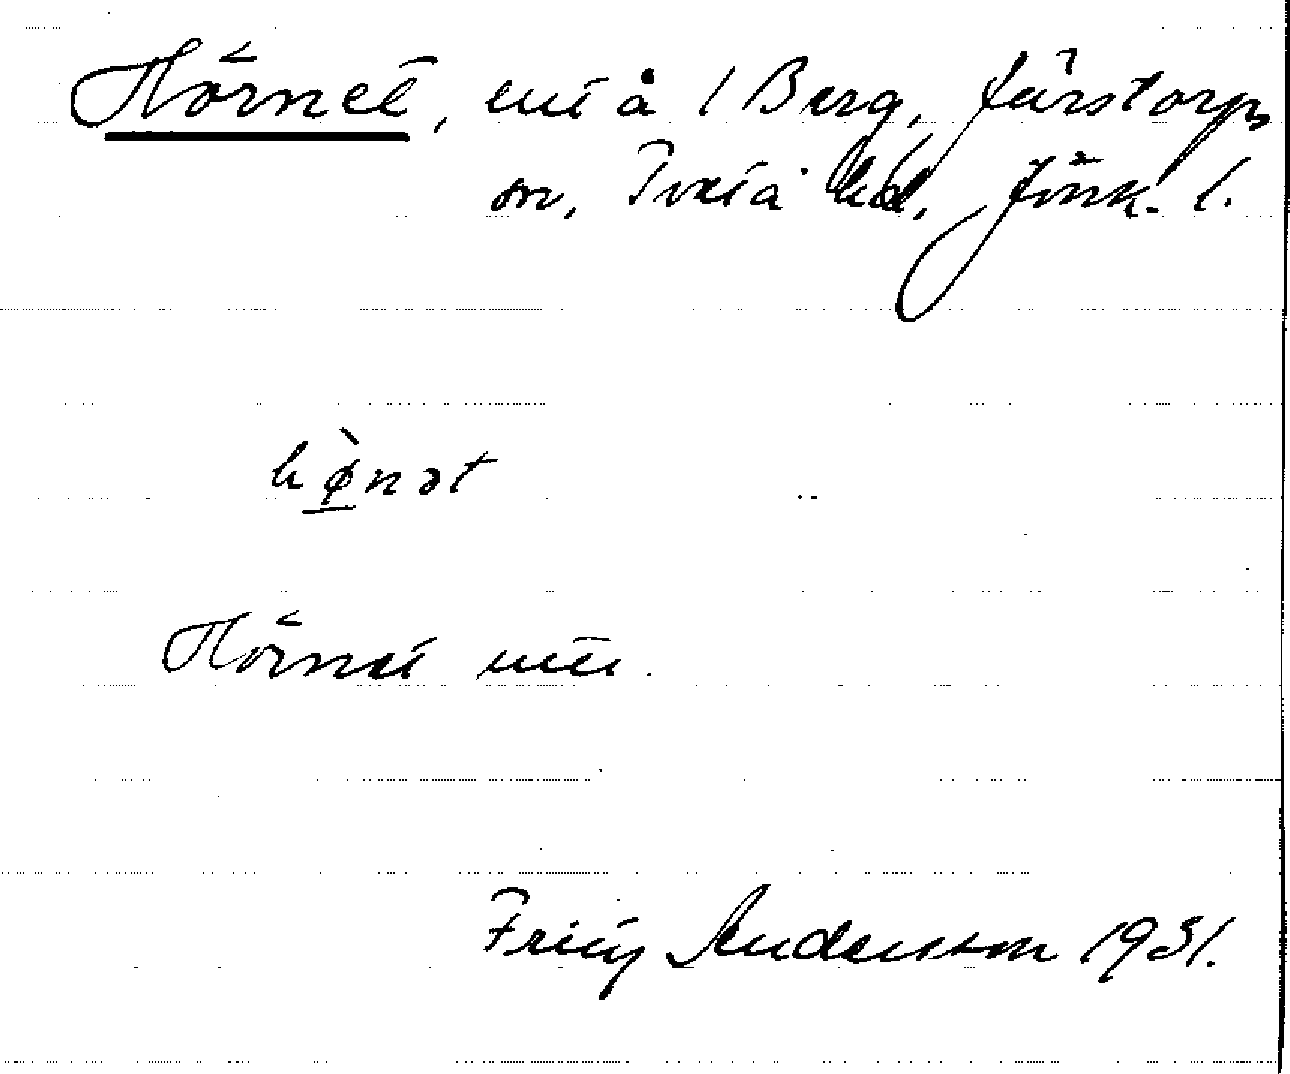 Hörnet, å 1 Berg, Järstorps
sn, Tveta hd, Jönk. l.
hø̀nət
Hörnet
Fritz Andersson 1931.